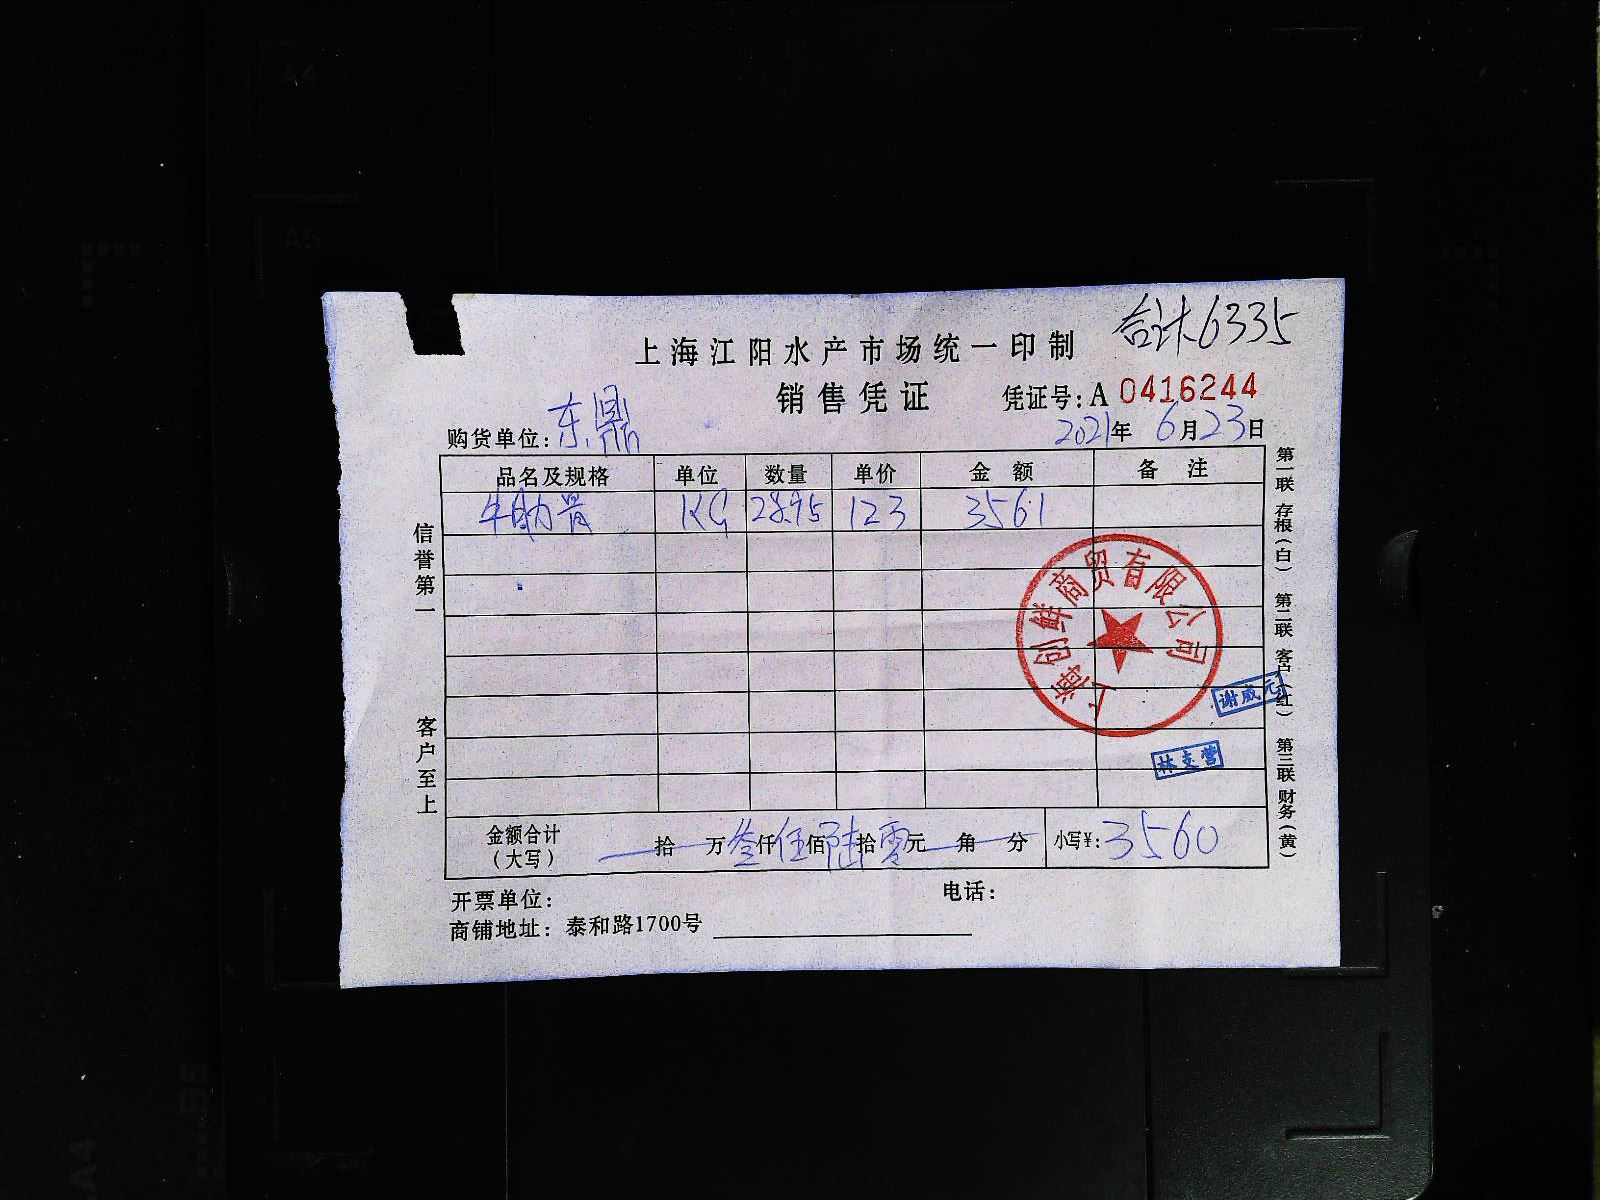 合计6335
上海江阳水产市场统一印制
销售凭证
凭证号: A 0416244
购货单位: 东鼎
2021年 6月23日
品名及规格 单位 数量 单价 金额 备注
牛肋骨 KG 28.95 123 3561
信誉第一
客户至上
第一联 存根(白) 第二联 客户(红) 第三联 财务(黄)
上海创鲜商贸有限公司
谢威元
林支营
金额合计(大写) 拾 万叁仟伍佰陆拾零元 角 分 小写¥: 3560
开票单位: 电话:
商铺地址: 泰和路1700号
A4
A5
B5
A4